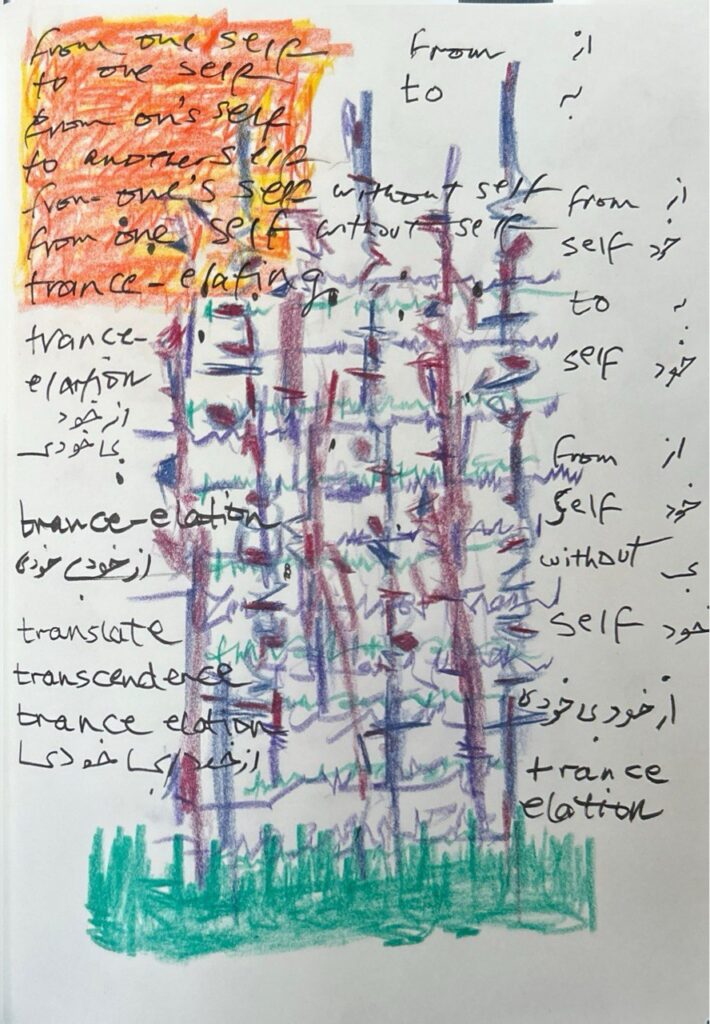 from one self
to one self
from on's self
to another self
from one's self without self
from one self without self
trance-elating
trance-
elartion
از خود
بی خودی
trance-elation
از خود بی خودی
translate
transcendence
trance elation
از خود
خودی
from از
to به
from از
self خود
to به
self خود
from از
self خود
without بی
self خود
از خود بی خود
trance
elation